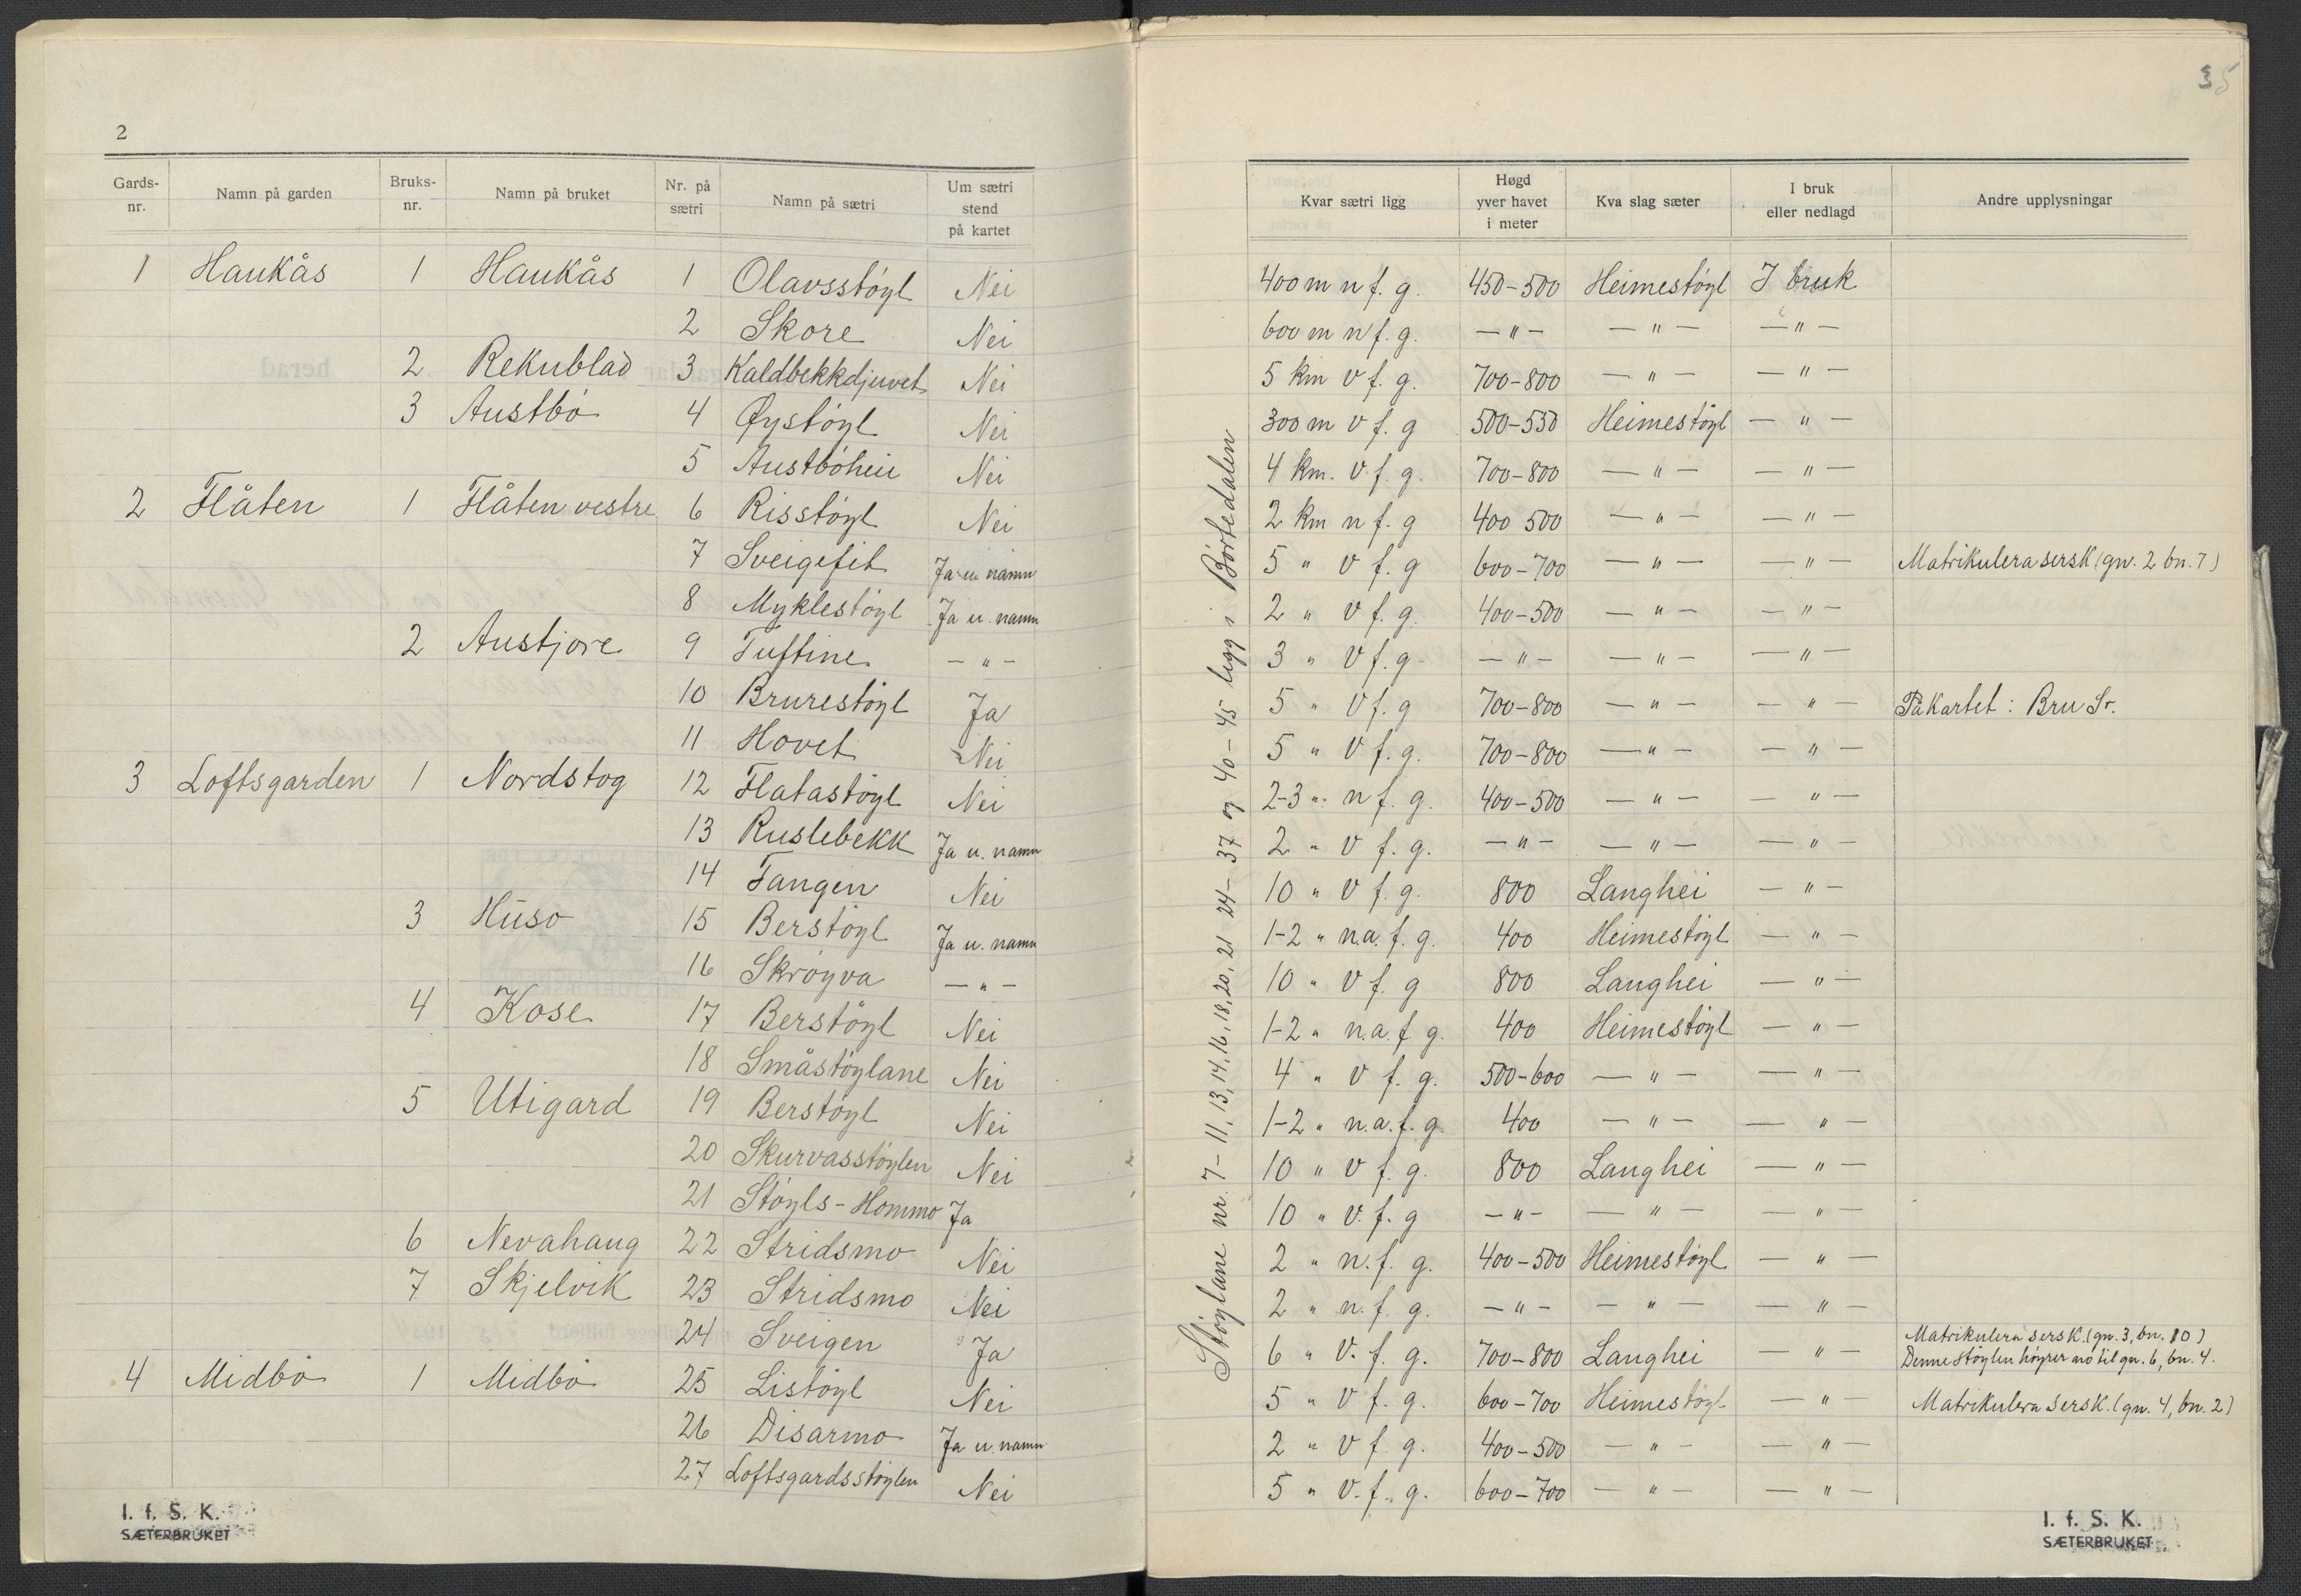 2
Gards-nr. | Namn på garden | Bruks-nr. | Namn på bruket | Nr. på sætri | Namn på sætri | Um sætri stend på kartet
1 | Haukås | 1 | Haukås | 1 | Olavsstøyl | Nei
2 | Skore | Nei
2 | Rekublad | 3 | Kaldbekkdjuvet | Nei
3 | Austbø | 4 | Øystøyl | Nei
5 | Austbøhei | Nei
2 | Flåten | 1 | Flåten vestre | 6 | Risstøyl | Nei
7 | Sveigefit | Ja u. namn
8 | Myklestøyl | Ja u. namn
2 | Austjore | 9 | Tuftine | — " —
10 | Brurestøyl | Ja
11 | Hovet | Nei
3 | Loftsgarden | 1 | Nordstog | 12 | Flatastøyl | Nei
13 | Ruslebekk | Ja u. namn
14 | Tangen | Nei
3 | Huso | 15 | Berstøyl | Ja u. namn
16 | Skrøyva | — " —
4 | Kose | 17 | Berstøyl | Nei
18 | Småstøylane | Nei
5 | Utigard | 19 | Berstøyl | Nei
20 | Skurvasstøylen | Nei
21 | Støyls-Hommo | Ja
6 | Nevahaug | 22 | Stridsmo | Nei
7 | Skjelvik | 23 | Stridsmo | Nei
24 | Sveigen | Ja
4 | Midbø | 1 | Midbø | 25 | Listøyl | Nei
26 | Disarmo | Ja u. namn
27 | Loftsgardsstøylen | Nei
I. f. S. K.
SÆTERBRUKET
35
Støylane nr. 7-11, 13, 14, 16, 18, 20, 21 24-37 og 40-45 ligg i Børtedalen
Kvar sætri ligg | Høgd yver havet i meter | Kva slag sæter | I bruk eller nedlagd | Andre upplysningar
400 m n f. g. | 450-500 | Heimestøyl | I bruk
600 m n f. g. | — " — | — " — | — " —
5 km v f. g. | 700-800 | — " — | — " —
300 m v f. g | 500-550 | Heimestøyl | — " —
4 km. v. f. g. | 700-800 | — " — | — " —
2 km n f. g | 400 500 | — " — | — " —
5 " v f. g | 600-700 | — " — | — " — | Matrikulera sersk (gn. 2 bn. 7)
2 " v f. g. | 400-500 | — " — | — " —
3 " v f. g. | — " — | — " — | — " —
5 " v f. g | 700-800 | — " — | — " — | På kartet: Bru Sr.
5 " v f. g. | 700-800 | — " — | — " —
2-3 " n f. g. | 400-500 | — " — | — " —
2 " v f. g. | — " — | — " — | — " —
10 " v f. g. | 800 | Langhei | — " —
1-2 " n.a. f. g. | 400 | Heimestøyl | — " —
10 " v f. g | 800 | Langhei | — " —
1-2 " n.a f g. | 400 | Heimestøyl | — " —
4 " v f. g. | 500-600 | — " — | — " —
1-2 " n.a. f. g. | 400 | — " — | — " —
10 " v f. g. | 800 | Langhei | — " —
10 " v. f. g | — " — | — " — | — " —
2 " n. f. g. | 400-500 | Heimestøyl | — " —
2 " n. f. g. | — " — | — " — | — " —
6 " v. f. g. | 700-800 | Langhei | — " — | Matrikulera sersk. (gn. 3, bn. 10)
Denne støylen høyrer no til gn. 6, bn. 4.
5 " v f. g. | 600-700 | Heimestøyl | — " — | Matrikulera sersk. (gn. 4, bn. 2)
2 " v f. g. | 400-500 | — " — | — " —
5 " v. f. g. | 600-700 | — " — | — " —
I. f. S. K.
SÆTERBRUKET